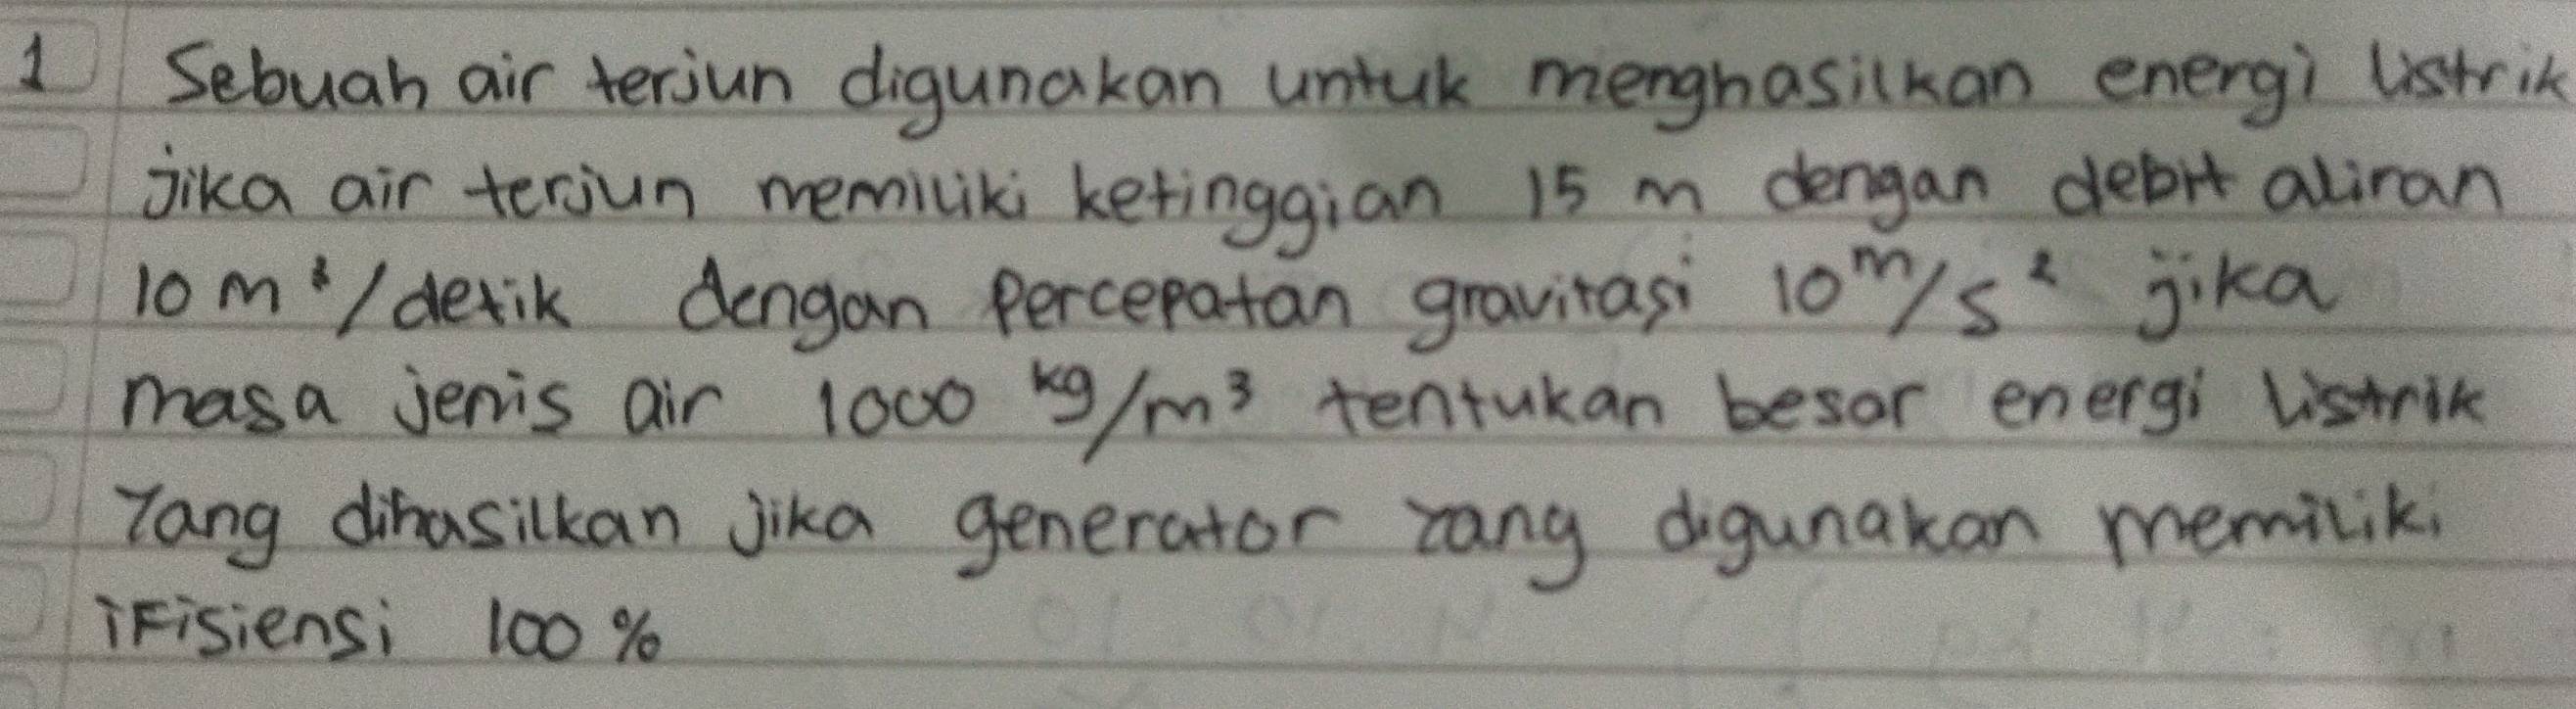 1 Sebuah air terjun digunakan untuk menghasilkan energi listrik
jika air terjun memiliki ketinggian 15 m dengan debit aliran
10 m³/detik dengan percepatan gravitasi 10 m/s² jika
masa jenis air 1000 kg/m³ tentukan besar energi listrik
Yang dihasilkan jika generator yang digunakan memiliki
iFisiensi 100 %